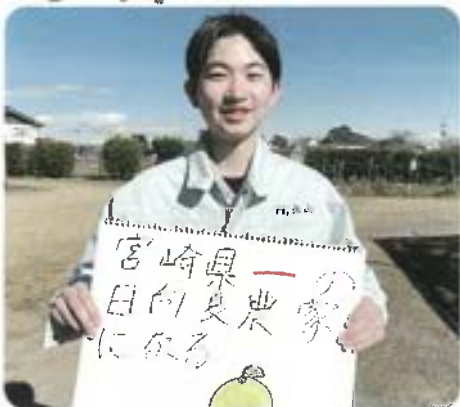 宮崎県一の
日向夏農家
になる